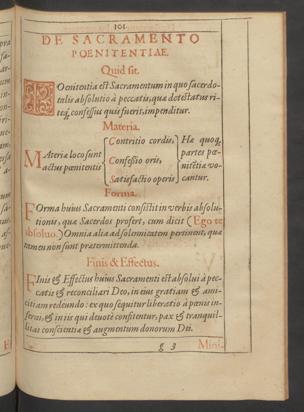 101.
DE SACRAMENTO
POENITENTIAE.
Quid sit.
POenitentia est Sacramentum in quo sacerdo-
talis absolutio à peccatis, quæ detestatus ri-
teq́; confessus quis fuerit, impenditur.
Materia.
Materiæ loco sunt
actus pœnitentis
Contritio cordis,
Confessio oris,
Satisfactio operis
Hæ quoq;
partes pœ-
nitẽtiæ vo-
cantur.
Forma.
FOrma huius Sacramenti consistit in verbis absolu-
tionis, quæ Sacerdos profert, cum dicit (Ego te
absoluo.) Omnia alia ad solemnitatem pertinent, quæ
tamen non sunt prætermittenda.
Finis & Effectus.
FInis & Effectus huius Sacramenti est absolui à pec-
catis & reconciliari Deo, in eius gratiam & ami-
citiam redeundo: ex quo sequitur liberatio à pœnis in-
ferni, & in iis qui deuotè confitentur, pax & tranquil-
litas conscientiæ & augmentum donorum Dei.
g 3
Mini-